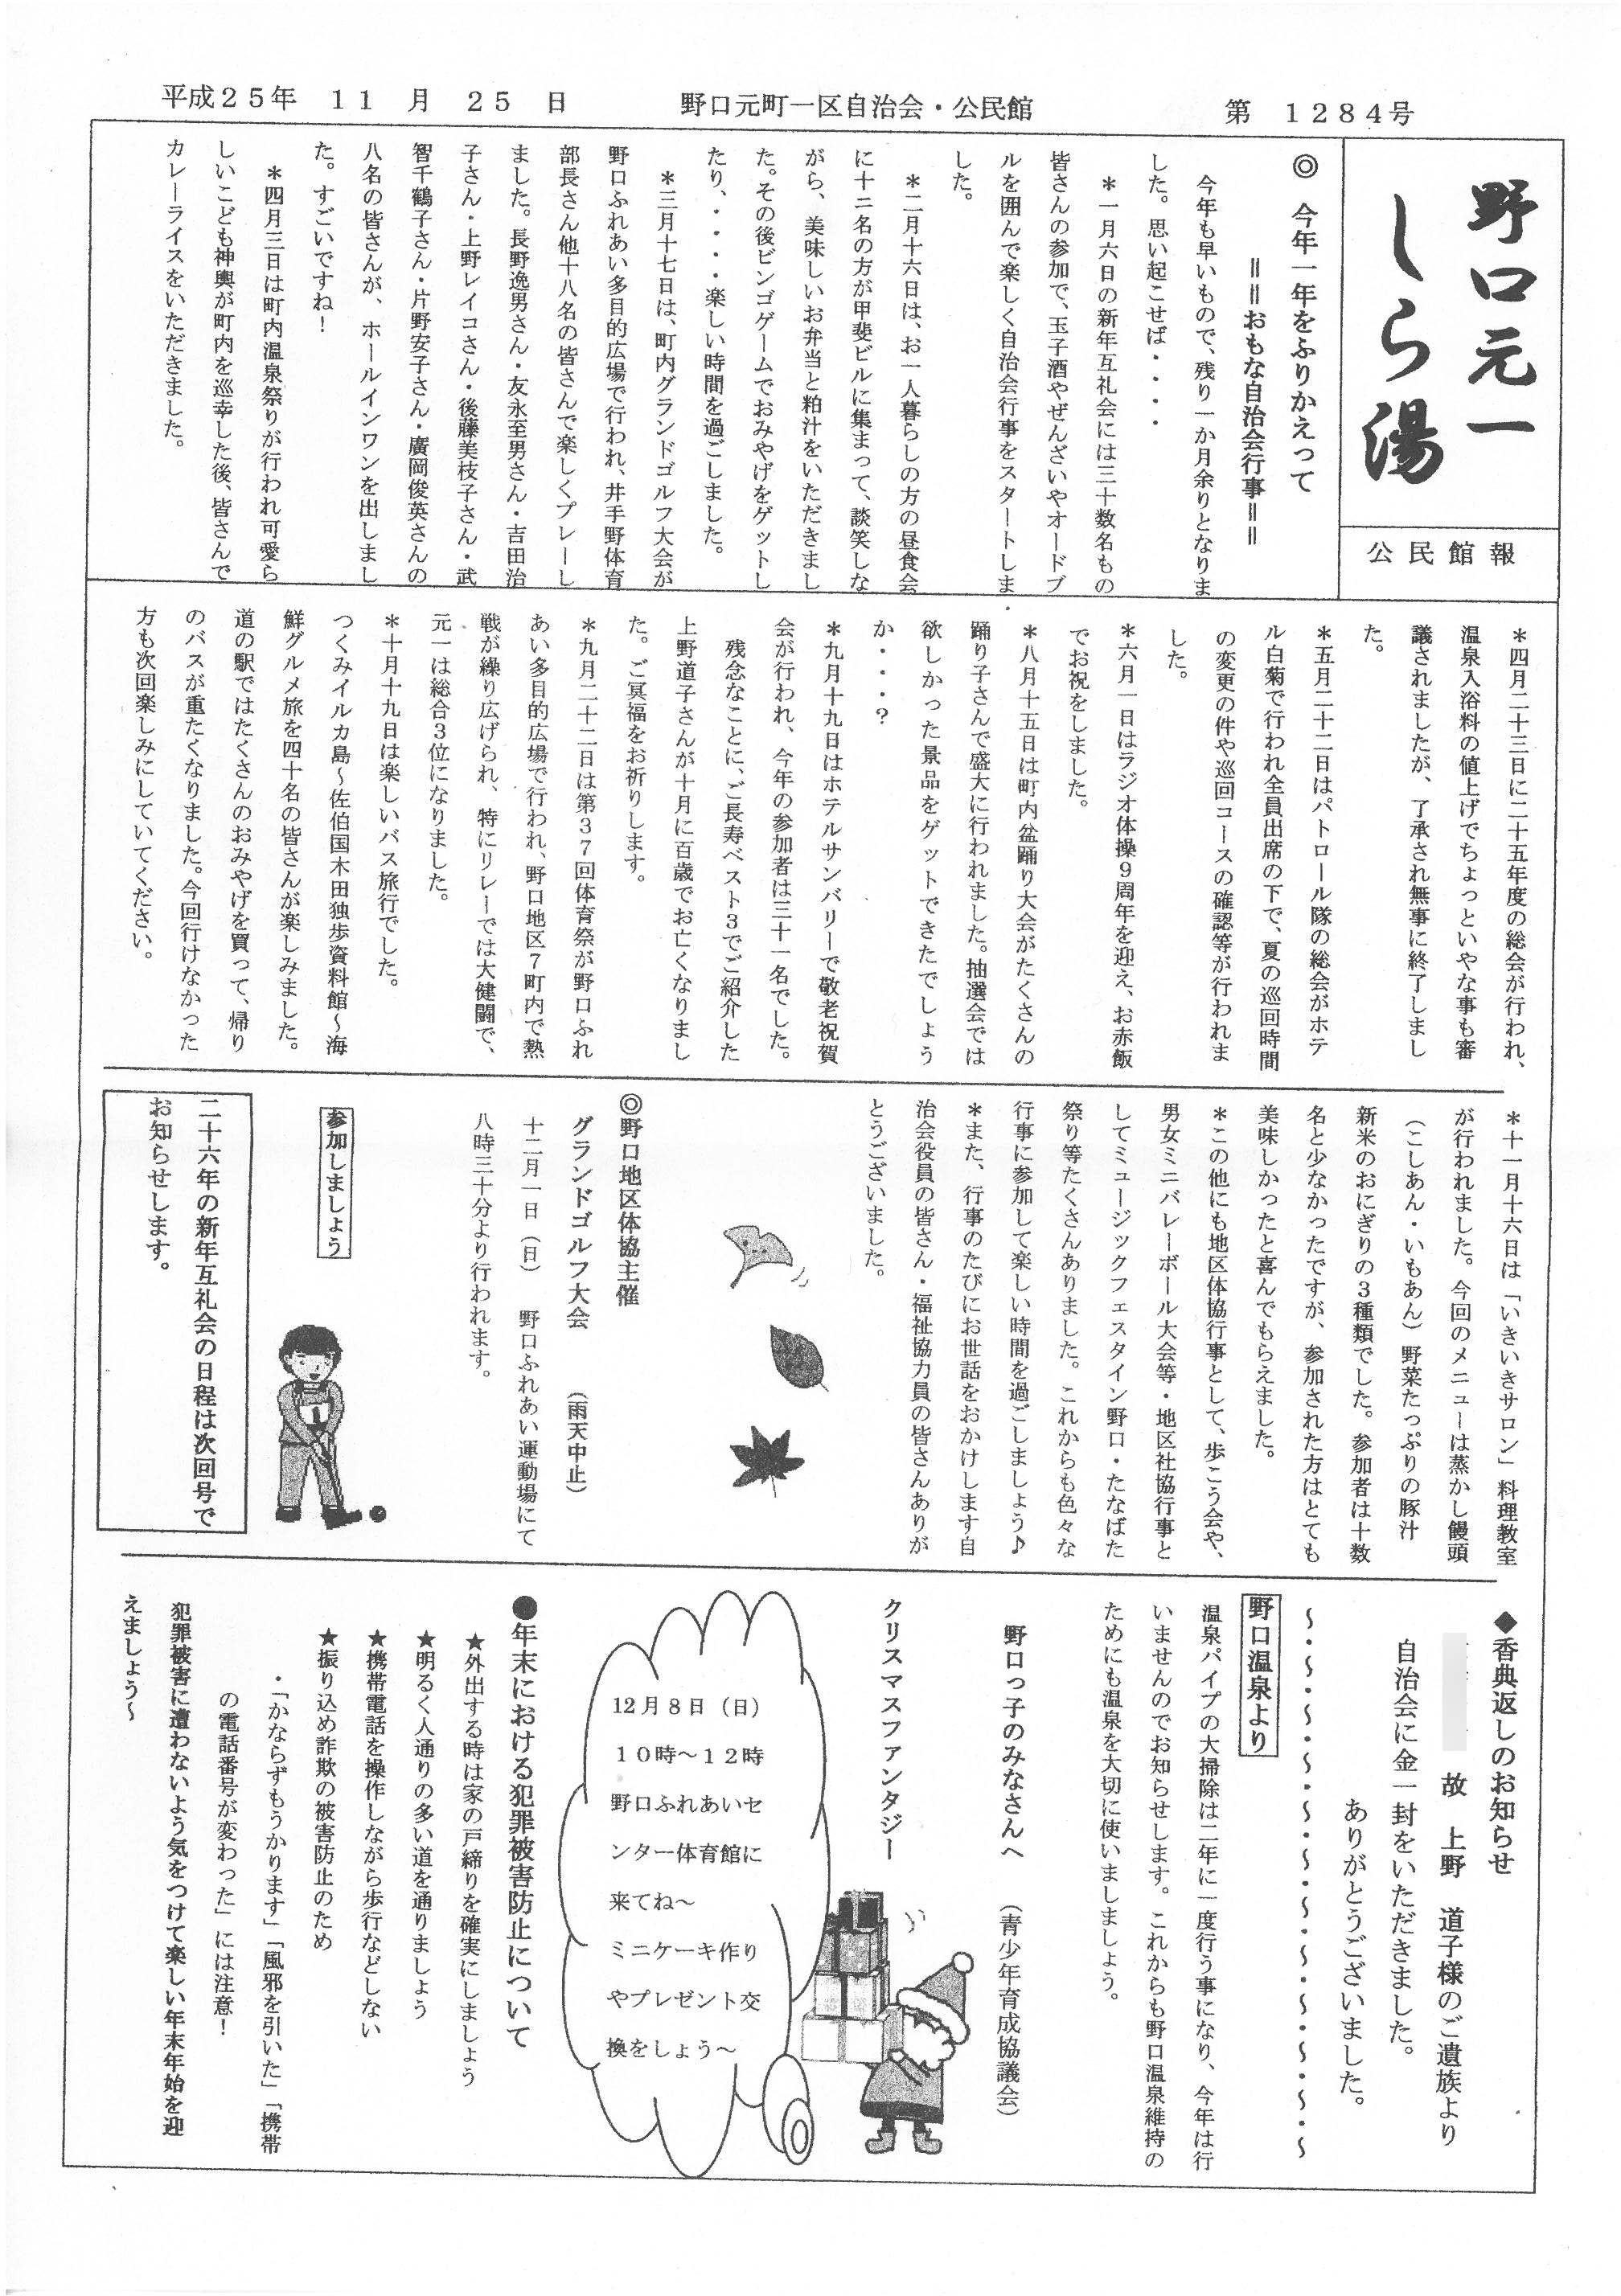 平成25年 11 月 25 日 野口元町一区自治会・公民館 第 1284号
野口元一
しら湯
公民館報
◎ 今年一年をふりかえって
＝＝おもな自治会行事＝＝
今年も早いもので、残り一か月余りとなりま
した。思い起こせば・・・・
＊一月六日の新年互礼会には三十数名もの
皆さんの参加で、玉子酒やぜんざいやオードブ
ルを囲んで楽しく自治会行事をスタートしま
した。
＊二月十六日は、お一人暮らしの方の昼食会
に十二名の方が甲斐ビルに集まって、談笑しな
がら、美味しいお弁当と粕汁をいただきまし
た。その後ビンゴゲームでおみやげをゲットし
たり、・・・・楽しい時間を過ごしました。
＊三月十七日は、町内グランドゴルフ大会が
野口ふれあい多目的広場で行われ、井手野体育
部長さん他十八名の皆さんで楽しくプレーし
ました。長野逸男さん・友永至男さん・吉田治
子さん・上野レイコさん・後藤美枝子さん・武
智千鶴子さん・片野安子さん・廣岡俊英さんの
八名の皆さんが、ホールインワンを出しまし
た。すごいですね！
＊四月三日は町内温泉祭りが行われ可愛ら
しいこども神輿が町内を巡幸した後、皆さんで
カレーライスをいただきました。
＊四月二十三日に二十五年度の総会が行われ、
温泉入浴料の値上げでちょっといやな事も審
議されましたが、了承され無事に終了しまし
た。
＊五月二十二日はパトロール隊の総会がホテ
ル白菊で行われ全員出席の下で、夏の巡回時間
の変更の件や巡回コースの確認等が行われま
した。
＊六月一日はラジオ体操9周年を迎え、お赤飯
でお祝をしました。
＊八月十五日は町内盆踊り大会がたくさんの
踊り子さんで盛大に行われました。抽選会では
欲しかった景品をゲットできたでしょう
か・・・？
＊九月十九日はホテルサンバリーで敬老祝賀
会が行われ、今年の参加者は三十一名でした。
残念なことに、ご長寿ベスト3でご紹介した
上野道子さんが十月に百歳でお亡くなりまし
た。ご冥福をお祈りします。
＊九月二十二日は第37回体育祭が野口ふれ
あい多目的広場で行われ、野口地区7町内で熱
戦が繰り広げられ、特にリレーでは大健闘で、
元一は総合3位になりました。
＊十月十九日は楽しいバス旅行でした。
つくみイルカ島～佐伯国木田独歩資料館～海
鮮グルメ旅を四十名の皆さんが楽しみました。
道の駅ではたくさんのおみやげを買って、帰り
のバスが重たくなりました。今回行けなかった
方も次回楽しみにしていてください。
＊十一月十六日は「いきいきサロン」料理教室
が行われました。今回のメニューは蒸かし饅頭
（こしあん・いもあん）野菜たっぷりの豚汁
新米のおにぎりの3種類でした。参加者は十数
名と少なかったですが、参加された方はとても
美味しかったと喜んでもらえました。
＊この他にも地区体協行事として、歩こう会や、
男女ミニバレーボール大会等・地区社協行事と
してミュージックフェスタイン野口・たなばた
祭り等たくさんありました。これからも色々な
行事に参加して楽しい時間を過ごしましょう♪
＊また、行事のたびにお世話をおかけします自
治会役員の皆さん・福祉協力員の皆さんありが
とうございました。
◎野口地区体協主催
グランドゴルフ大会 （雨天中止）
十二月一日（日） 野口ふれあい運動場にて
八時三十分より行われます。
参加しましょう
1
二十六年の新年互礼会の日程は次回号で
お知らせします。
◆香典返しのお知らせ
故 上野 道子様のご遺族より
自治会に金一封をいただきました。
ありがとうございました。
～・～・～・～・～・～・～・～・～・～・～・～
野口温泉より
温泉パイプの大掃除は二年に一度行う事になり、今年は行
いませんのでお知らせします。これからも野口温泉維持の
ためにも温泉を大切に使いましましょう。
野口っ子のみなさんへ （青少年育成協議会）
クリスマスファンタジー
12月8日（日）
10時～12時
野口ふれあいセ
ンター体育館に
来てね～
ミニケーキ作り
やプレゼント交
換をしょう～
●年末における犯罪被害防止について
★外出する時は家の戸締りを確実にしましょう
★明るく人通りの多い道を通りましょう
★携帯電話を操作しながら歩行などしない
★振り込め詐欺の被害防止のため
・「かならずもうかります」「風邪を引いた」「携帯
の電話番号が変わった」には注意！
犯罪被害に遭わないよう気をつけて楽しい年末年始を迎
えましょう～